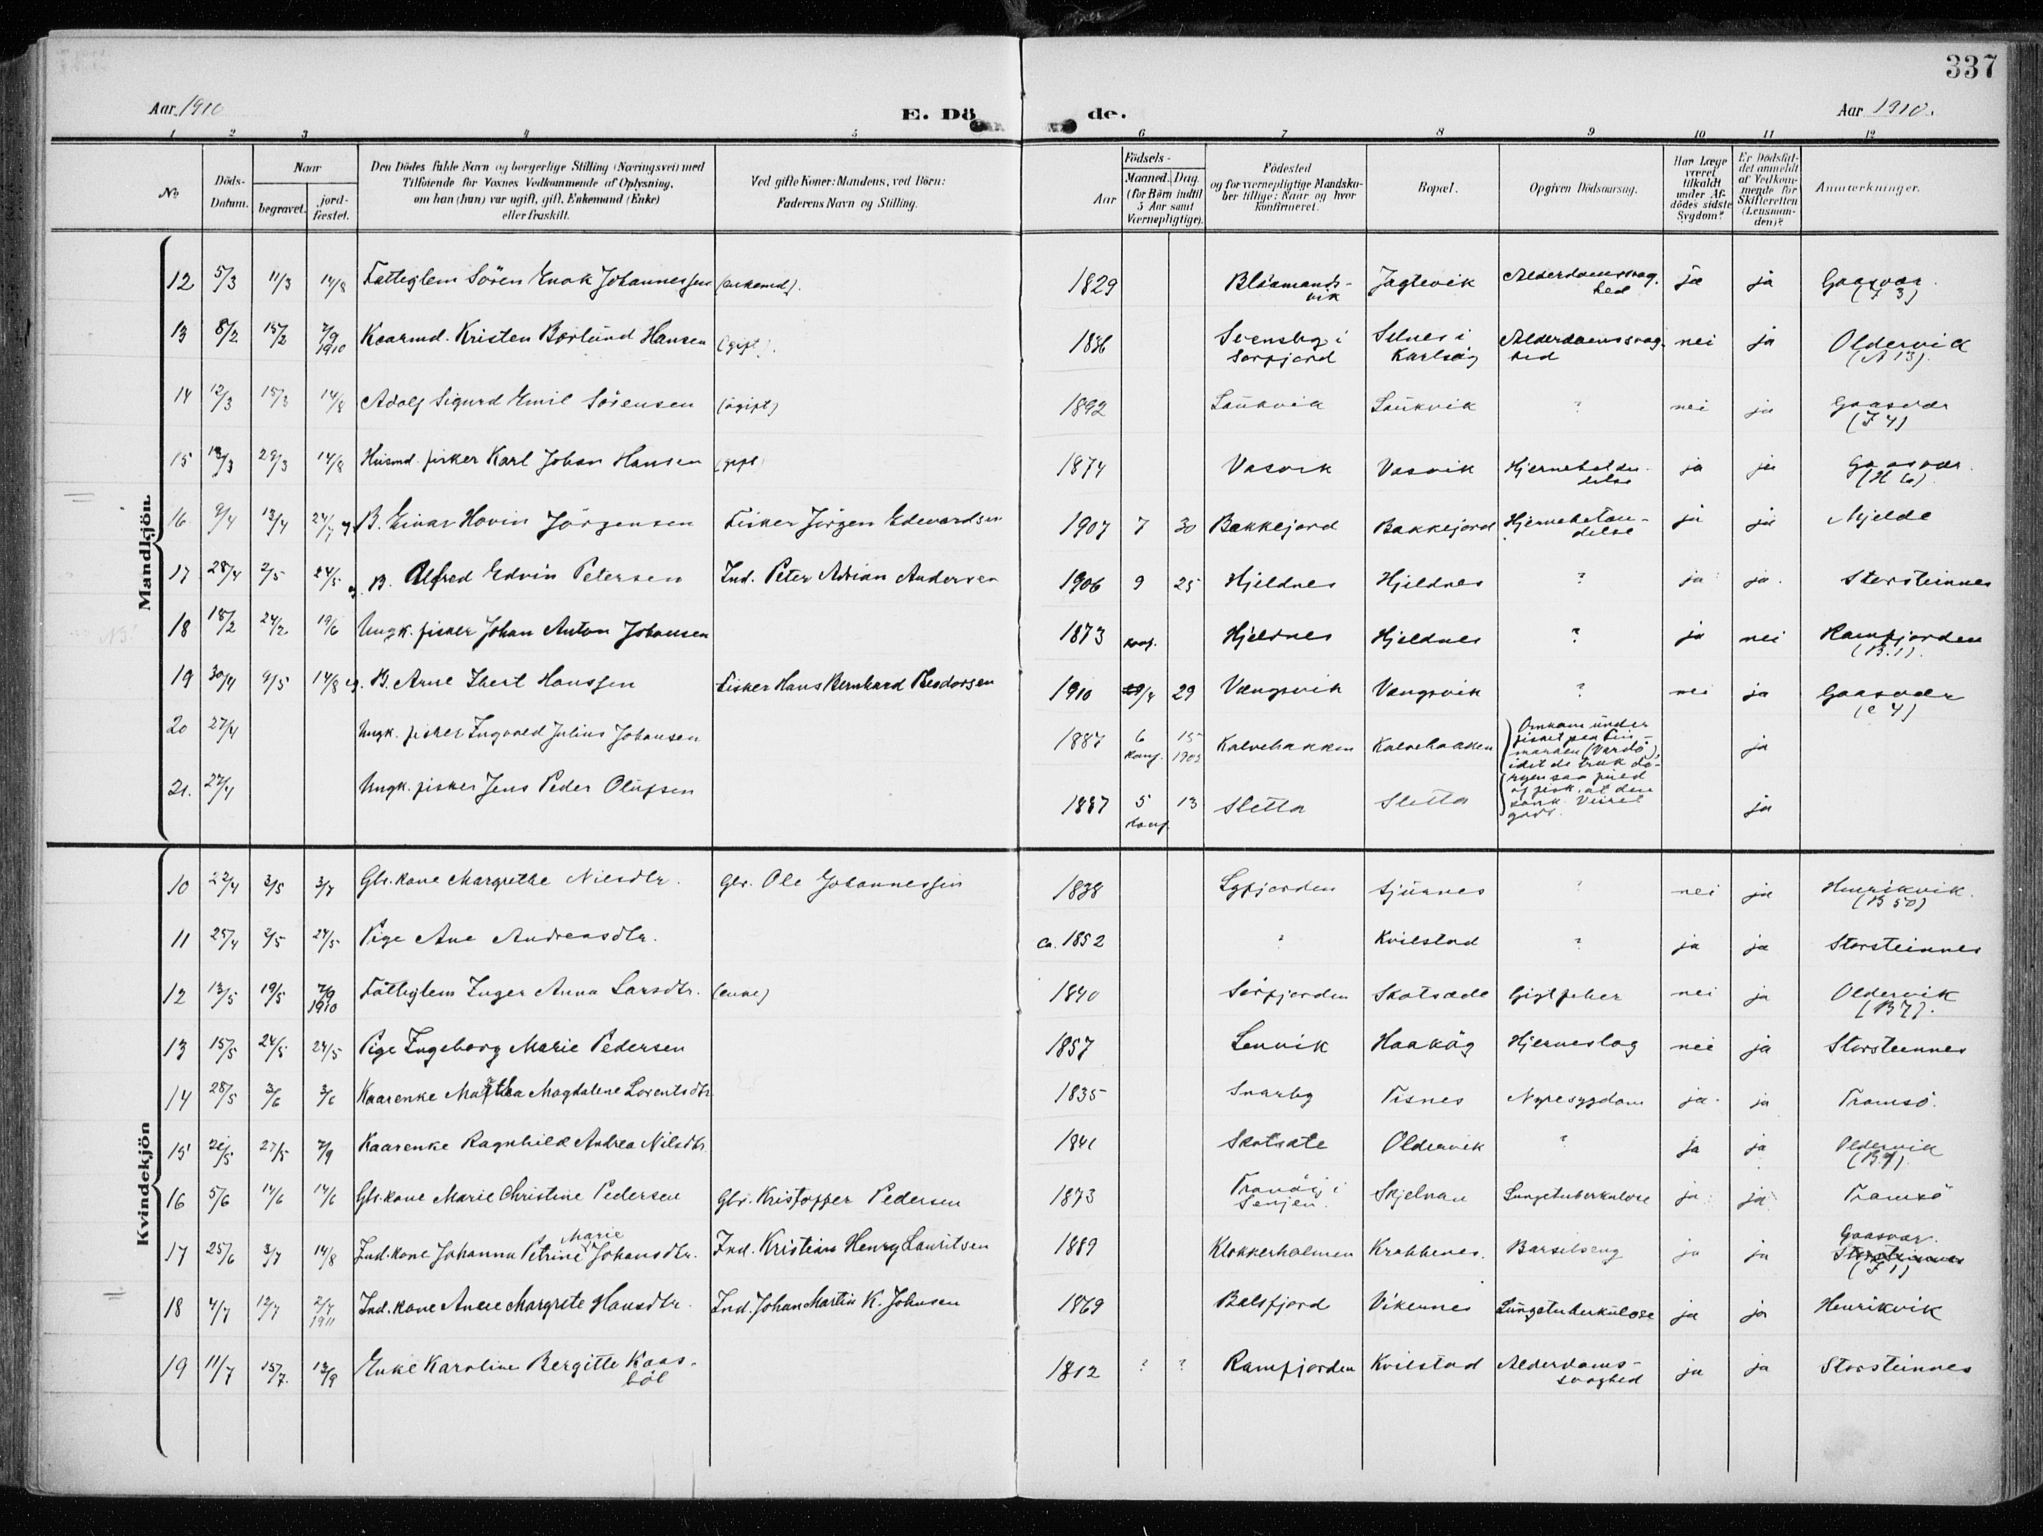 337
Aar 1910 E. Dö de. Aar 1910.
1 2 3 4 5 6 7 8 9 10 11 12
No. Döds-Datum. Naar begravet. jord-fæstet. Den Dödes fulde Navn og borgerlige Stilling (Næringsvei) med Tilföiende för Voxnes Vedkommende af Oplysning, om han (hun) var ugift, gift, Enkemand (Enke) eller fraskilt. Ved gifte Koner: Mandens, ved Börn: Faderens Navn og Stilling. Födsels- Aar Maaned. Dag. (for Börn indtil 5 Aar samt Værnepligtige). Födested og for værnepligtige Mandska-ber tillige: Naar og hvor konfirmeret. Bopæl. Opgiven Dödsaarsag. Har Læge været tilkaldt under Af-dödes sidste Sygdom? Er Dödsfal-det anmeldt af Vedkom-mende for Skifteretten (Lensman-den)? Anmærkninger.
Mandkjön.
12 5/3 11/3 14/8 Fattiglem Sören Enok Johannessen (enkemd). 1829 Blaamands-vik Jægtevik Alderdomssvag-hed ja ja Gaasvær (F 3)
13 8/2 15/2 7/9 1910 Kaarmd. Kristen Berlund Hansen (gift). 1836 Svensby i Sørfjord Selnes i Karlsøy Alderdomssvag-hed nei ja Oldervik (A 13).
14 12/3 15/3 14/8 Adolf Sigurd Emil Sörensen (ugift) 1892 Laukvik Laukvik ? nei ja Gaasvær (F 4)
15 13/3 29/3 14/8 Husmd. fisker Karl Johan Hansen (gift) 1874 Vasvik Vasvik Hjernebetæn-delse ja ja Gaasvær (H 6).
16 9/4 13/4 24/7 g B. Einar Hovin Jörgensen Fisker Jörgen Edevardsen 1907 7 30 Bakkejord Bakkejord Hjernebetæn-delse ja ja Mjelde
17 28/4 2/5 24/5 g B. Alfred Edvin Petersen Ind. Peter Adrian Andersen 1906 9 25 Hjeldnes Hjeldnes ? ja ja. Storsteinnes
18 18/2 24/2 19/6 Ungk. fisker Johan Anton Johansen 1873 konf. Hjeldnes Hjeldnes ? ja nei Ramfjorden (B.1).
19 30/4 9/5 14/8 g. B. Arne Ibert Hanssen Fisker Hans Bernhard Teodorsen 1910 4 29 Vængsvik Vængsvik ? nei ja Gaasvær (C 4)
20 27/4 Ungk. fisker Ingvald Julius Johansen 1887 6 konf. 15 1902 Kalvebakken Kalvebakken Omkom under fisket paa Fin-marken (Vardø), idet de trak do-rgen saa fuld af fisk, at den sank. Veiret godt. ja
21. 27/4 Ungk. fisker Jens Peder Olufsen 1887 5 konf. 13 Sletta Sletta ja
Kvindekjön
10 22/4 3/5 3/7 Gbr. kone Margrethe Nilsdtr. Gbr. Ole Johannessen 1838 Lyfjorden Sjursnes ? nei ja Henrikvik. (B 50)
11 25/4 2/5 24/5 Pige Ane Andreasdtr. Ca. 1852 ? Kvilstad ? ja ja Storsteinnes
12 13/5 19/5 7/9 1910 Fattiglem Inger Anna Larsdtr. (enke) 1840 Sørfjorden Skotsæde Gigtfeber nei ja Oldervik (B 7).
13 15/5 24/5 24/5 Pige Ingeborg Marie Pedersen 1857 Lenvik Haakøy Hjerneslag nei ja Storsteinnes
14 28/5 3/6 3/6 Kaarenke Martha Magdalene Lorentsdtr. 1835 Snarby Tisnes Nyresygdom ja ja Tromsö.
15 21/5 27/5 7/9 Kaarenke Ragnhild Andrea Nilsdtr. 1841 Skotsæte Oldervik ? ja ja Oldervik (B 9).
16 5/6 14/6 14/6 Gbr. kone Marie Christine Pedersen Gbr. Kristoffer Pedersen 1873 Tranöy i Senjen. Skjelnan Lungetuberkulose ja ja Tromsö
17 25/6 3/7 14/8 Ind. kone Johanna Petrine Marie Johansdtr. Ind. Kristian Henry Lauritsen 1889 Klokkerholmen Krabbenes. Barselseng ja ja Gaasvær. Storsteinnes (F 1)
18 4/7 12/7 2/7 1911 Ind. kone Anne Margrete Hansdtr. Ind. Johan Martin K. Johnsen 1869 Balsfjord Vikennes Lungetuberkulose ja ja Henrikvik
19 11/7 15/7. 13/9 Enke Karoline Bergitte Kaas-böl 1812 ? ? Ramfjorden Kvilstad Alderdoms-svaghed ja ja Storsteinnes